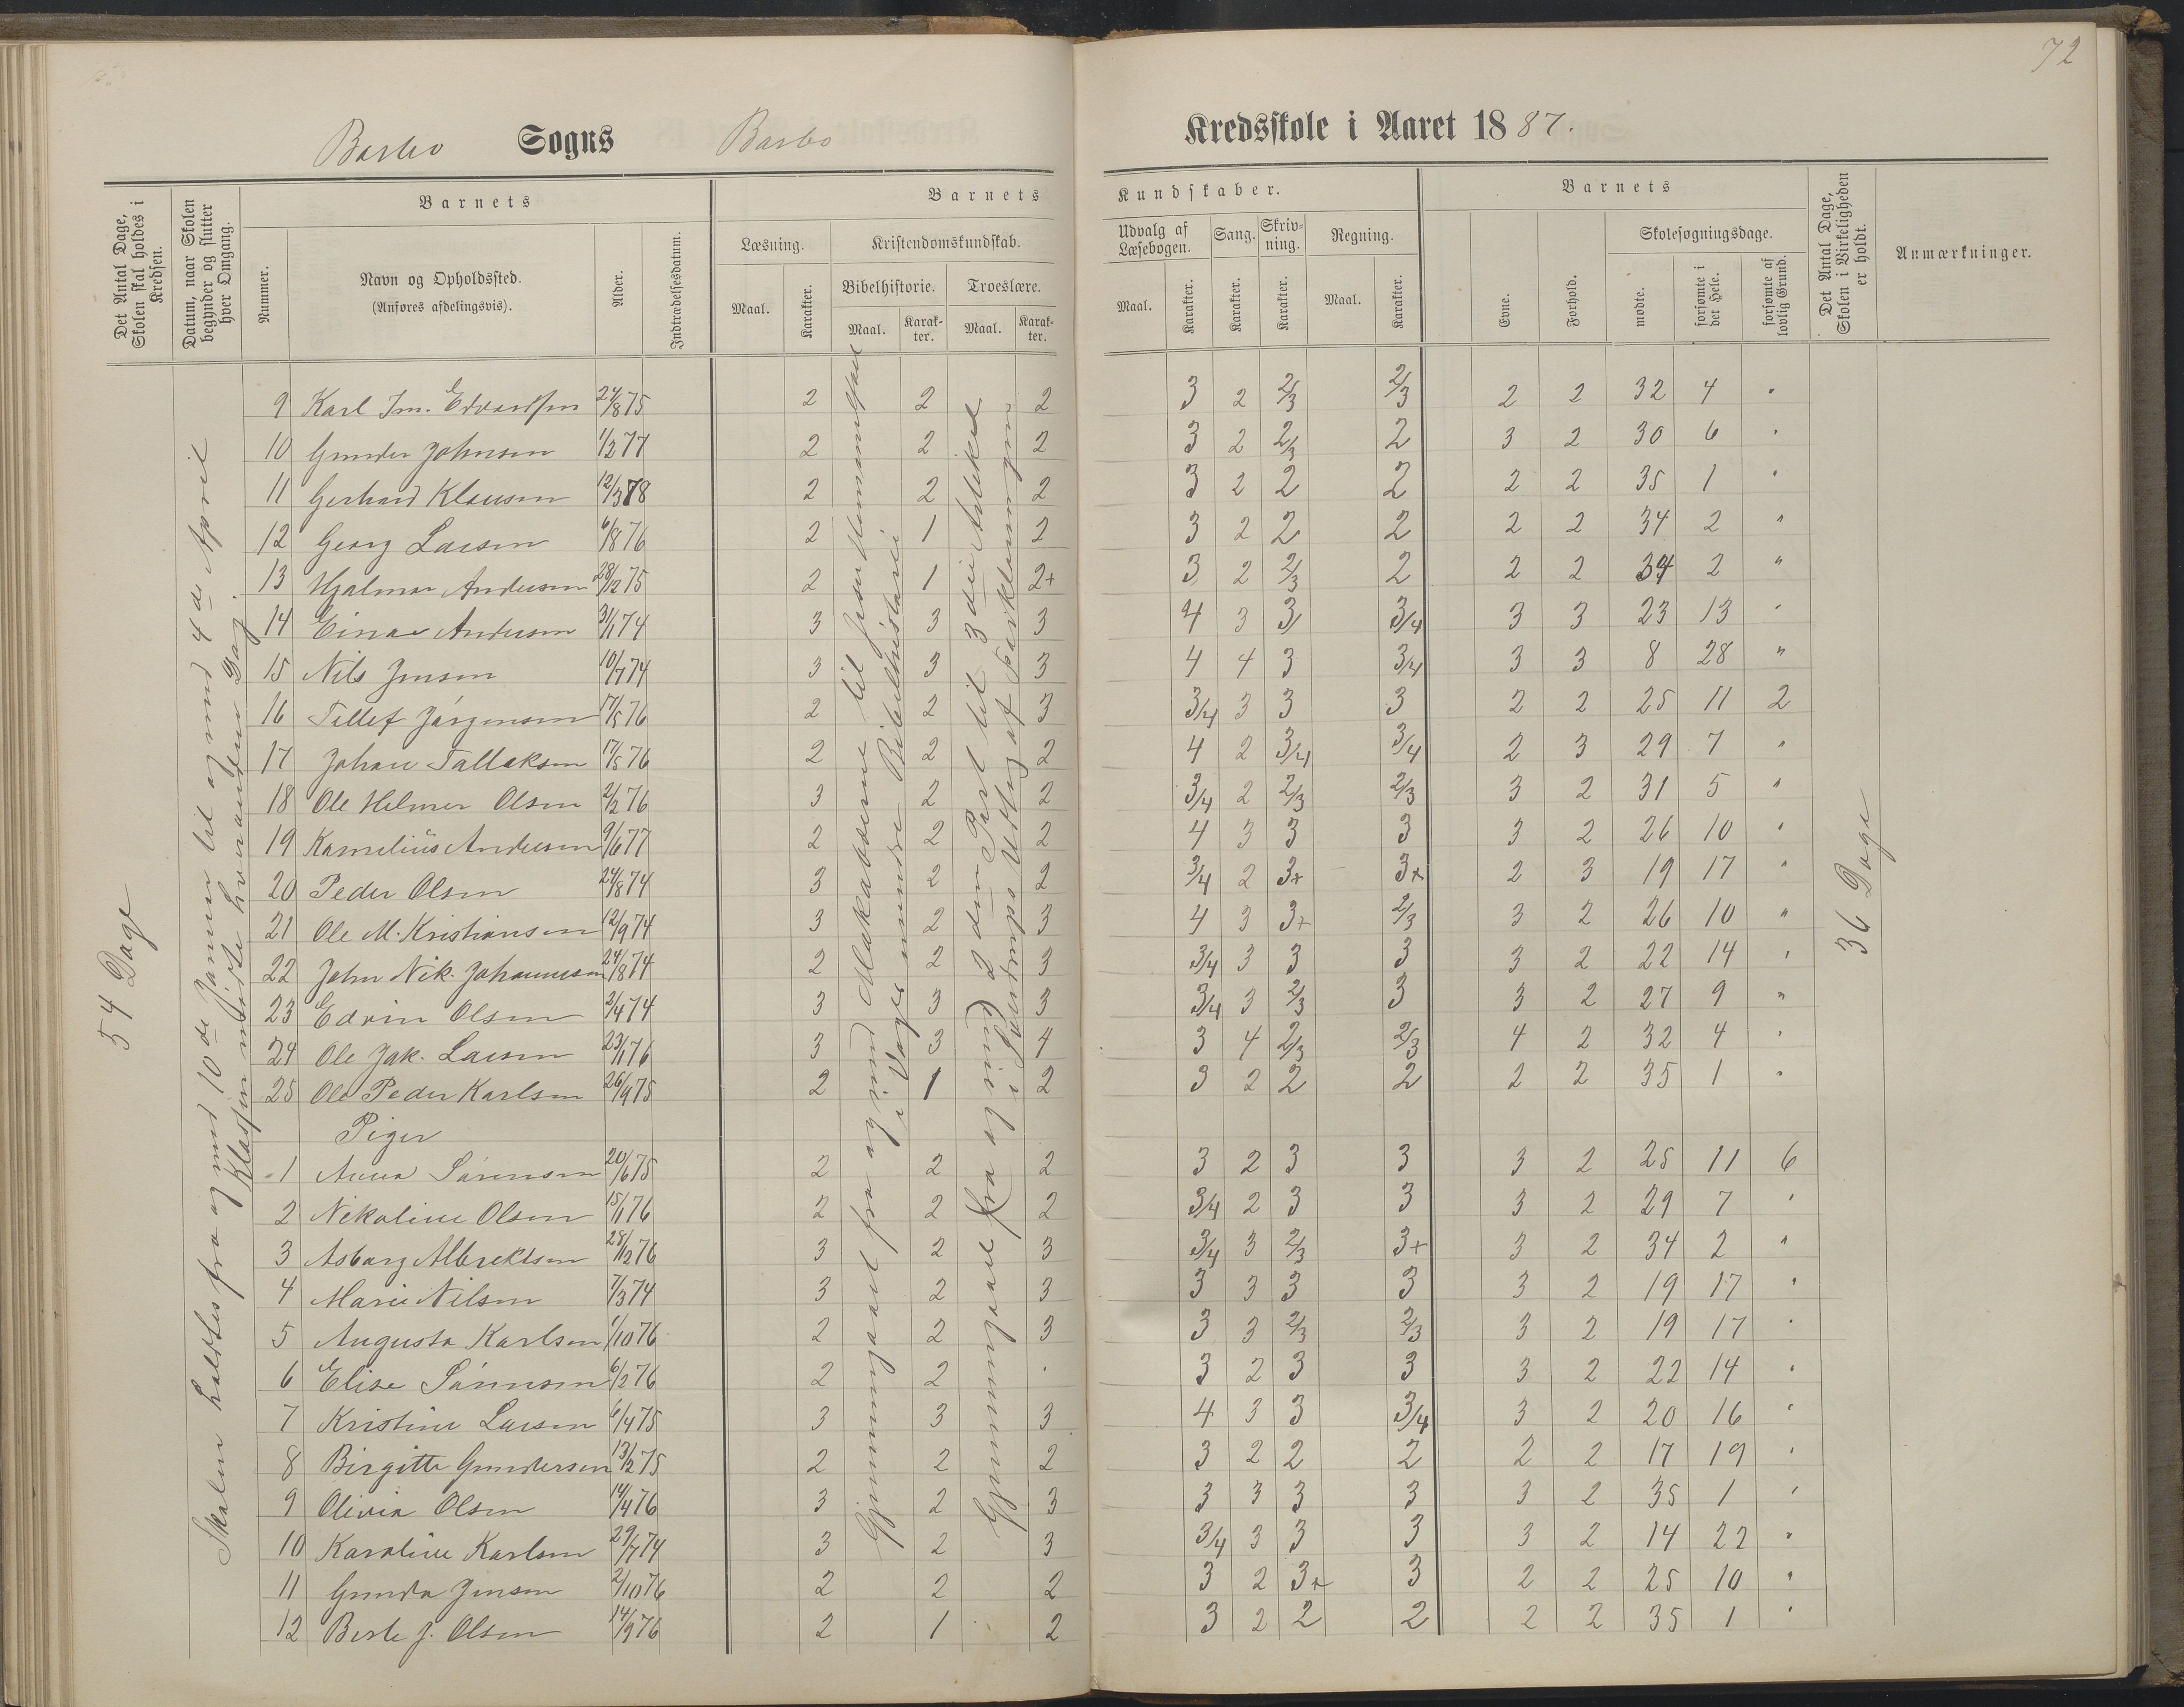 72
Barbo Sogns Barbo Kredsskole i Aaret 1887.
Det Antal Dage, Skolen skal holdes i Kredsen.
Datum, naar Skolen begynder og slutter hver Omgang.
Barnets
Nummer.
Navn og Opholdssted.
(Anføres afdelingsvis).
Alder.
Indtrædelsesdatum.
Barnets Kundskaber.
Læsning.
Maal. Karakter.
Kristendomskundskab.
Bibelhistorie. Troeslære.
Maal. Karakter. Maal. Karakter.
Udvalg af Læsebogen. Sang. Skrivning. Regning.
Maal. Karakter. Karakter. Karakter. Maal. Karakter.
Barnets
Evne. Forhold.
Skolesøgningsdage.
mødte. forsømte i det Hele. forsømte af lovlig Grund.
Det Antal Dage, Skolen i Virkeligheden er holdt.
Anmærkninger.
54 Dage
Skolen holdtes fra og med 10de Januar til og med 4de April
Klassen mødte hveranden Dag.
Gjennemgaaet fra og med Makabæerne til Jesu Himmelfart
i Vogts mindre Bibelhistorie
Gjennemgaaet fra og med 2den Part til 3die Artikel
i Pontoppi Udtog af Forklaringen
36 Dage
9 Karl Im. Edvardsen 24/8 75 2 2 2 3 2 2/3 2/3 2 2 32 4 "
10 Gunder Johnsen 1/2 77 2 2 2 3 2 2/3 2 3 2 30 6 "
11 Gerhard Klausen 12/3 78 2 2 2 3 2 2 2 2 2 35 1 "
12 Georg Larsen 6/8 76 2 1 2 3 2 2 2 2 2 34 2 "
13 Hjalmar Andersen 28/12 75 2 1 2+ 3 2 2/3 2 2 2 34 2 "
14 Einar Andersen 31/1 74 3 3 3 4 3 3 3/4 3 3 23 13 "
15 Nils Jensen 10/7 74 3 3 3 4 4 3 3/4 3 3 8 28 "
16 Tellef Jørgensen 17/5 76 2 2 3 3/4 3 3 3 2 2 25 11 2
17 Johan Tallaksen 17/5 76 2 2 2 4 2 3/4 3/4 2 3 29 7 "
18 Ole Helmer Olsen 2/2 76 3 2 2 3/4 2 2/3 2/3 3 2 31 5 "
19 Kornelius Andersen 9/6 77 2 2 2 4 3 3 3 3 2 26 10 "
20 Peder Olsen 24/8 74 3 2 2 3/4 2 3+ 3+ 2 3 19 17 "
21 Ole M. Kristiansen 12/9 74 3 2 3 4 3 3+ 2/3 3 2 26 10 "
22 John Nik. Johannesen 24/8 74 2 2 3 3/4 3 3 3 3 2 22 14 "
23 Edvin Olsen 2/4 74 3 3 3 3/4 3 2/3 3 3 2 27 9 "
24 Ole Jak. Larsen 23/1 76 3 3 4 3 4 2/3 2/3 4 2 32 4 "
25 Ole Peder Karlsen 26/9 75 2 1 2 3 2 2 2 2 2 35 1 "
Piger
1 Anna Sørensen 20/6 75 2 2 2 3 2 3 3 3 2 25 11 6
2 Nikoline Olsen 15/1 76 2 2 2 3/4 2 3 3 3 2 29 7 "
3 Asborg Albrektsen 28/12 76 3 2 3 3/4 3 2/3 3+ 3 2 34 2 "
4 Marie Nilsen 7/3 74 3 2 3 3 3 3 3 3 2 19 17 "
5 Augusta Karlsen 1/10 76 2 2 3 3 3 2/3 2/3 3 2 19 17 "
6 Elise Sørensen 6/2 76 2 2 . 3 2 3 3 3 2 22 14 "
7 Kristine Larsen 6/4 75 3 3 3 4 3 3 3/4 3 2 20 16 "
8 Birgitte Gundersen 13/12 75 2 2 2 3 2 2 2 2 2 17 19 "
9 Olivia Olsen 14/4 76 3 2 3 3 3 3 3 3 2 35 1 "
10 Karoline Karlsen 29/7 74 3 2 3 3/4 3 3 3 3 2 14 22 "
11 Gunda Jensen 2/10 76 2 2 2 3 2 3+ 3 2 2 25 10 "
12 Berte J. Olsen 14/9 76 2 1 2 3 2 2 2 2 2 35 1 "